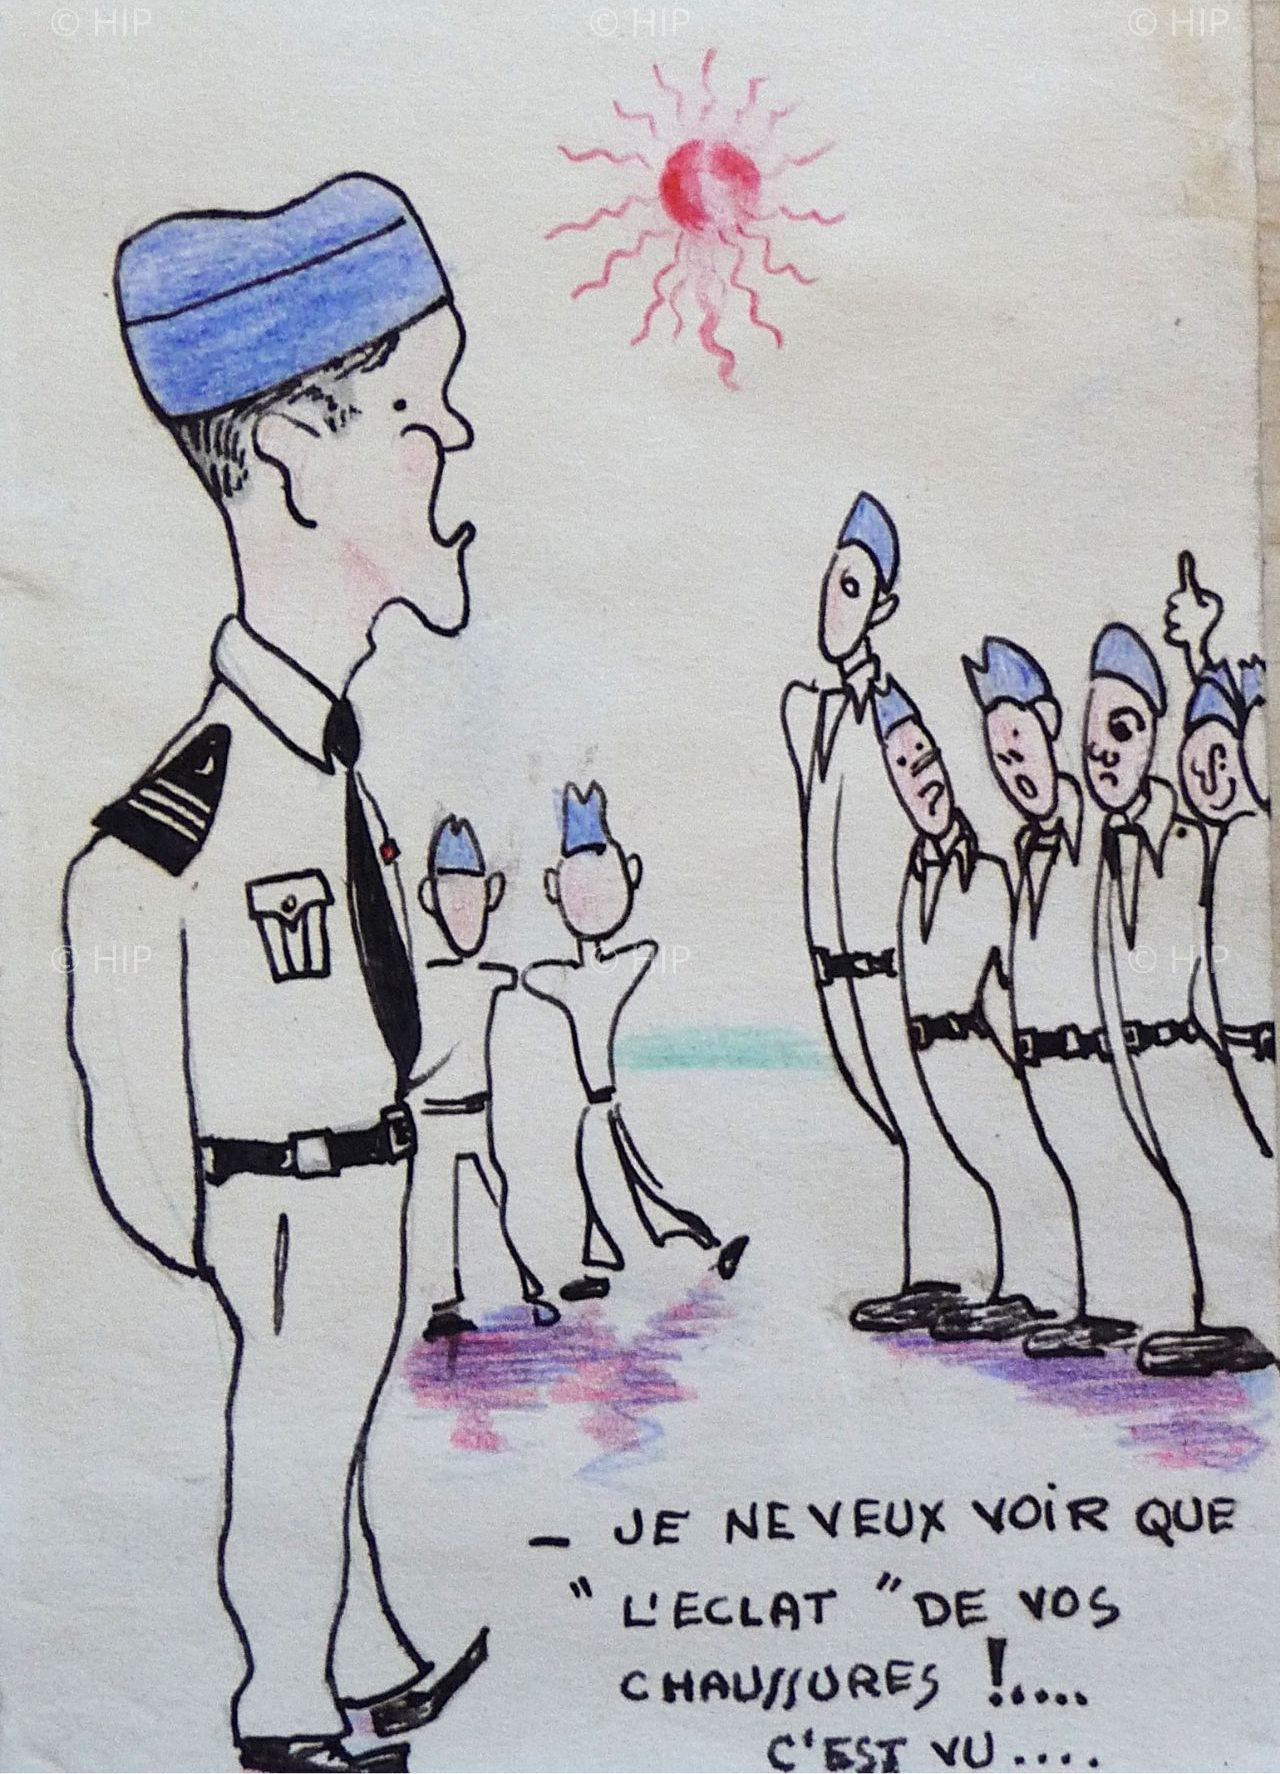 © HIP © HIP © HIP
© HIP © HIP © HIP
- JE NE VEUX VOIR QUE
" L'ECLAT " DE VOS
CHAUSSURES !....
C'EST VU....